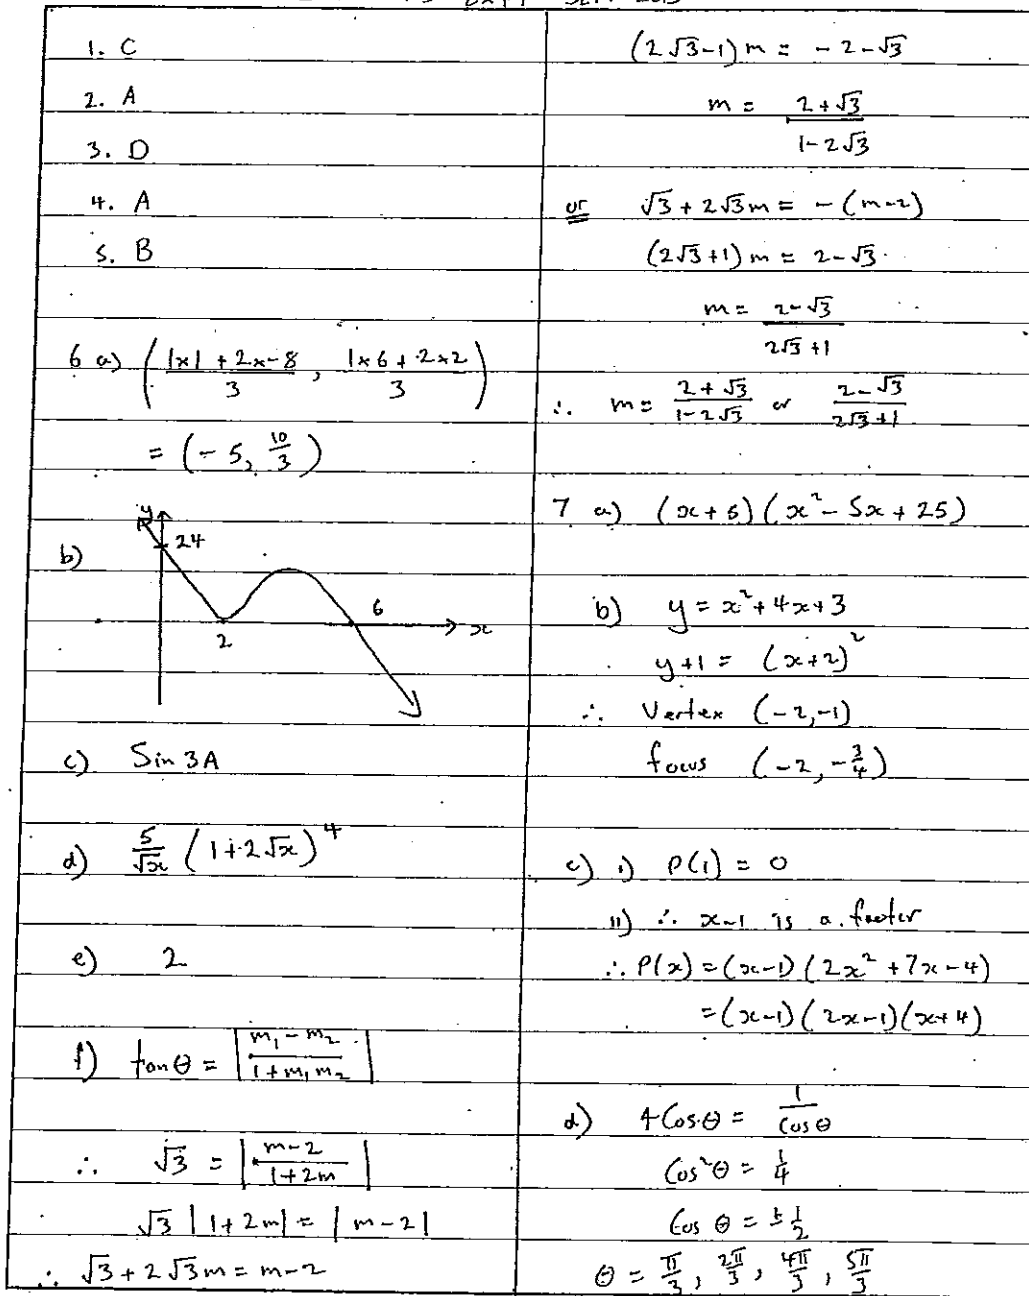 1. C
2. A
3. D
4. A
5. B
6 a) ( (1x1 + 2x-8)/3 , (1x6 + 2x2)/3 )
= (-5, 10/3)
b)
y
24
2
6
x
c) Sin 3A
d) 5/√x (1+2√x)^4
e) 2
f) tan θ = | (m₁ - m₂)/(1+m₁m₂) |
∴ √3 = | (m-2)/(1+2m) |
√3 |1+2m| = |m-2|
∴ √3 + 2√3m = m-2
(2√3-1)m = -2-√3
m = (2+√3)/(1-2√3)
or √3 + 2√3m = -(m-2)
(2√3+1)m = 2-√3
m = (2-√3)/(2√3+1)
∴ m = (2+√3)/(1-2√3) or (2-√3)/(2√3+1)
7 a) (x+5)(x² - 5x + 25)
b) y = x² + 4x + 3
y+1 = (x+2)²
∴ Vertex (-2,-1)
focus (-2, -3/4)
c) i) P(1) = 0
ii) ∴ x-1 is a factor
∴ P(x) = (x-1)(2x² + 7x - 4)
= (x-1)(2x-1)(x+4)
d) 4Cosθ = 1/Cosθ
Cos²θ = 1/4
Cos θ = ±1/2
θ = π/3, 2π/3, 4π/3, 5π/3